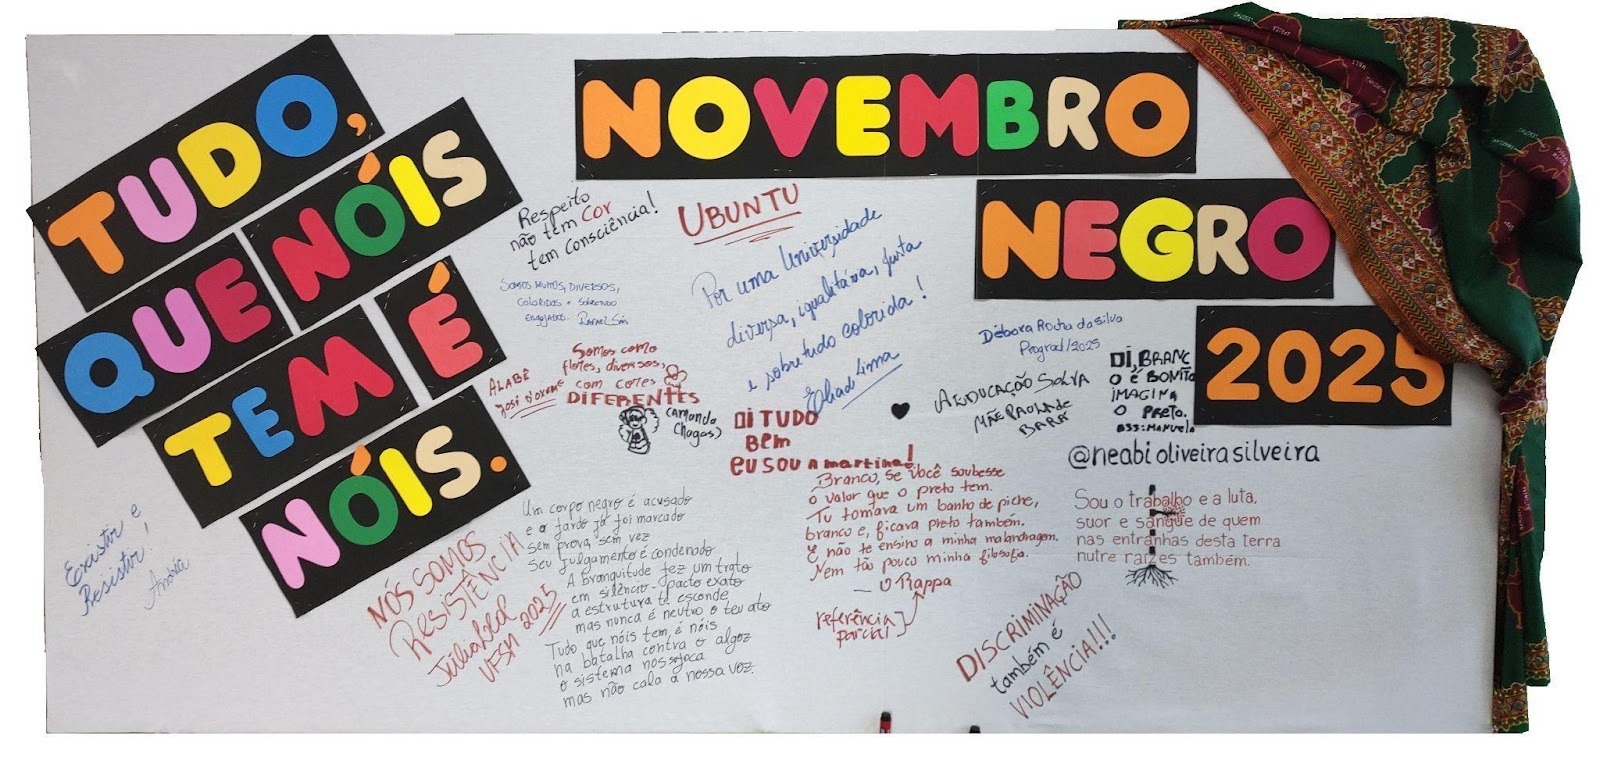 TUDO,
QUE NÓIS
TEM É
NÓIS.
NOVEMBRO
NEGRO
2025
Respeito
não tem Cor
tem consciência!
UBUNTU
Por uma Universidade
diversa, igualitária, justa
e sobretudo colorida!
Lima
SOMOS MUITOS, DIVERSOS,
COLORIDOS e SOBRETUDO
ENGAJADOS. RAFAEL
Débora Rocha da Silva
Prograd/2025
ALABÊ
Somos como
flores, diversos,
com cores
DIFERENTES
(Amanda
Chagas)
OI TUDO
Bem
eu sou a martina!
A EDUCAÇÃO SALVA
MÃE PAOLA DE
BARÁ
OI, BRANC
O É BONITO
IMAGINA
O PRETO.
ASS: MANUELA
@neabioliveirasilveira
Sou o trabalho e a luta,
suor e sangue de quem
nas entranhas desta terra
nutre raízes também.
Branco, se você soubesse
o valor que o preto tem.
Tu tomava um banho de piche,
branco e, ficava preto também.
E não te ensino a minha malandragem.
Nem tão pouco minha filosofia.
— O Rappa
referência
parcial
Um corpo negro é acusado
e o fardo já foi marcado
Sem prova, sem vez
Seu julgamento é condenado
A branquitude fez um trato
em silêncio - pacto exato
a estrutura te esconde
mas nunca é neutro o teu ato
Tudo que nóis tem, é nóis
na batalha contra o algoz
o sistema nos sufoca
mas não cala a nossa voz.
Existir e
Resistir!
Andréa
NÓS SOMOS
RESISTÊNCIA
UFSM 2025
DISCRIMINAÇÃO
também é
VIOLÊNCIA!!!